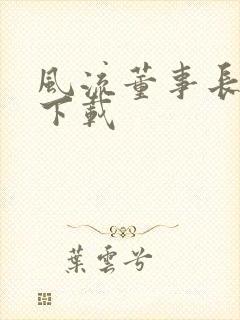 風流董事長
下載
葉雲兮